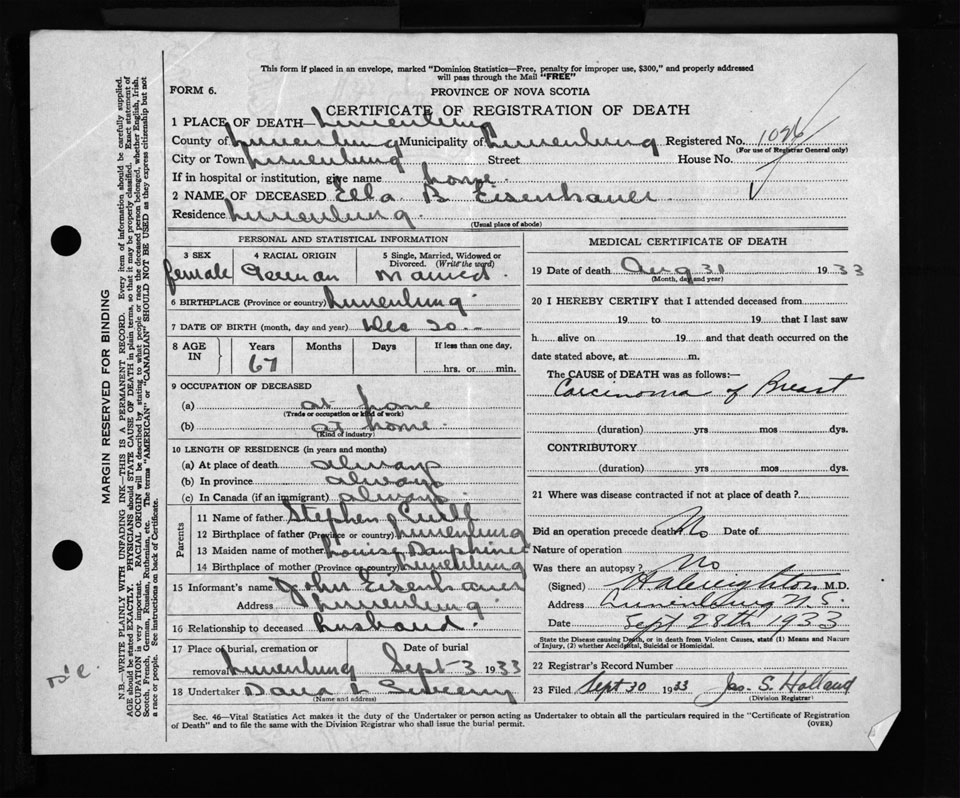 This form if placed in an envelope, marked "Dominion Statistics—Free, penalty for improper use, $300," and properly addressed
will pass through the Mail "FREE"
FORM 6.
PROVINCE OF NOVA SCOTIA
CERTIFICATE OF REGISTRATION OF DEATH
1 PLACE OF DEATH— Lunenburg
County of Lunenburg Municipality of Lunenburg Registered No. 1026
(For use of Registrar General only)
City or Town Lunenburg Street House No.
If in hospital or institution, give name home
2 NAME OF DECEASED Ella B Eisenhauer
Residence Lunenburg
(Usual place of abode)
PERSONAL AND STATISTICAL INFORMATION
3 SEX 4 RACIAL ORIGIN 5 Single, Married, Widowed or
Divorced. (Write the word)
female German Married
6 BIRTHPLACE (Province or country) Lunenburg
7 DATE OF BIRTH (month, day and year) Dec 20
8 AGE IN Years Months Days If less than one day,
67 hrs. or min.
9 OCCUPATION OF DECEASED
(a) at home
(Trade or occupation or kind of work)
(b) at home
(Kind of industry)
10 LENGTH OF RESIDENCE (in years and months)
(a) At place of death always
(b) In province always
(c) In Canada (if an immigrant) always
Parents
11 Name of father Stephen
12 Birthplace of father (Province or country) Lunenburg
13 Maiden name of mother Louisa Dauphinee
14 Birthplace of mother (Province or country) Lunenburg
15 Informant's name John Eisenhauer
Address Lunenburg
16 Relationship to deceased husband
17 Place of burial, cremation or Date of burial
removal Lunenburg Sept 3 1933
18 Undertaker
(Name and address)
MEDICAL CERTIFICATE OF DEATH
19 Date of death Aug 31 1933
(Month, day and year)
20 I HEREBY CERTIFY that I attended deceased from
19 to 19 that I last saw
h alive on 19 and that death occurred on the
date stated above, at m.
The CAUSE of DEATH was as follows:—
Carcinoma of Breast
(duration) yrs mos dys.
CONTRIBUTORY
(duration) yrs mos dys.
21 Where was disease contracted if not at place of death ?
Did an operation precede death No Date of
Nature of operation
Was there an autopsy ? No
(Signed) H A Creighton M.D.
Address Lunenburg N.S.
Date Sept 28th 1933
State the Disease causing Death, or in death from Violent Causes, state (1) Means and Nature
of Injury, (2) whether Accidental, Suicidal or Homicidal.
22 Registrar's Record Number
23 Filed Sept 30 1933 Jas. S. Holland
(Division Registrar)
Sec. 46—Vital Statistics Act makes it the duty of the Undertaker or person acting as Undertaker to obtain all the particulars required in the "Certificate of Registration
of Death" and to file the same with the Division Registrar who shall issue the burial permit.
(OVER)
MARGIN RESERVED FOR BINDING
N.B.—WRITE PLAINLY WITH UNFADING INK—THIS IS A PERMANENT RECORD. Every item of information should be carefully supplied.
AGE should be stated EXACTLY. PHYSICIANS should STATE CAUSE OF DEATH in plain terms, so that it may be properly classified. Exact statement of
OCCUPATION is very important. RACIAL ORIGIN will be described by stating to what people or race the deceased person belonged, whether English, Irish,
Scotch, French, German, Russian, Ruthenian, etc. The terms "AMERICAN" or "CANADIAN" SHOULD NOT BE USED as they express citizenship but not
a race or people. See instructions on back of Certificate.